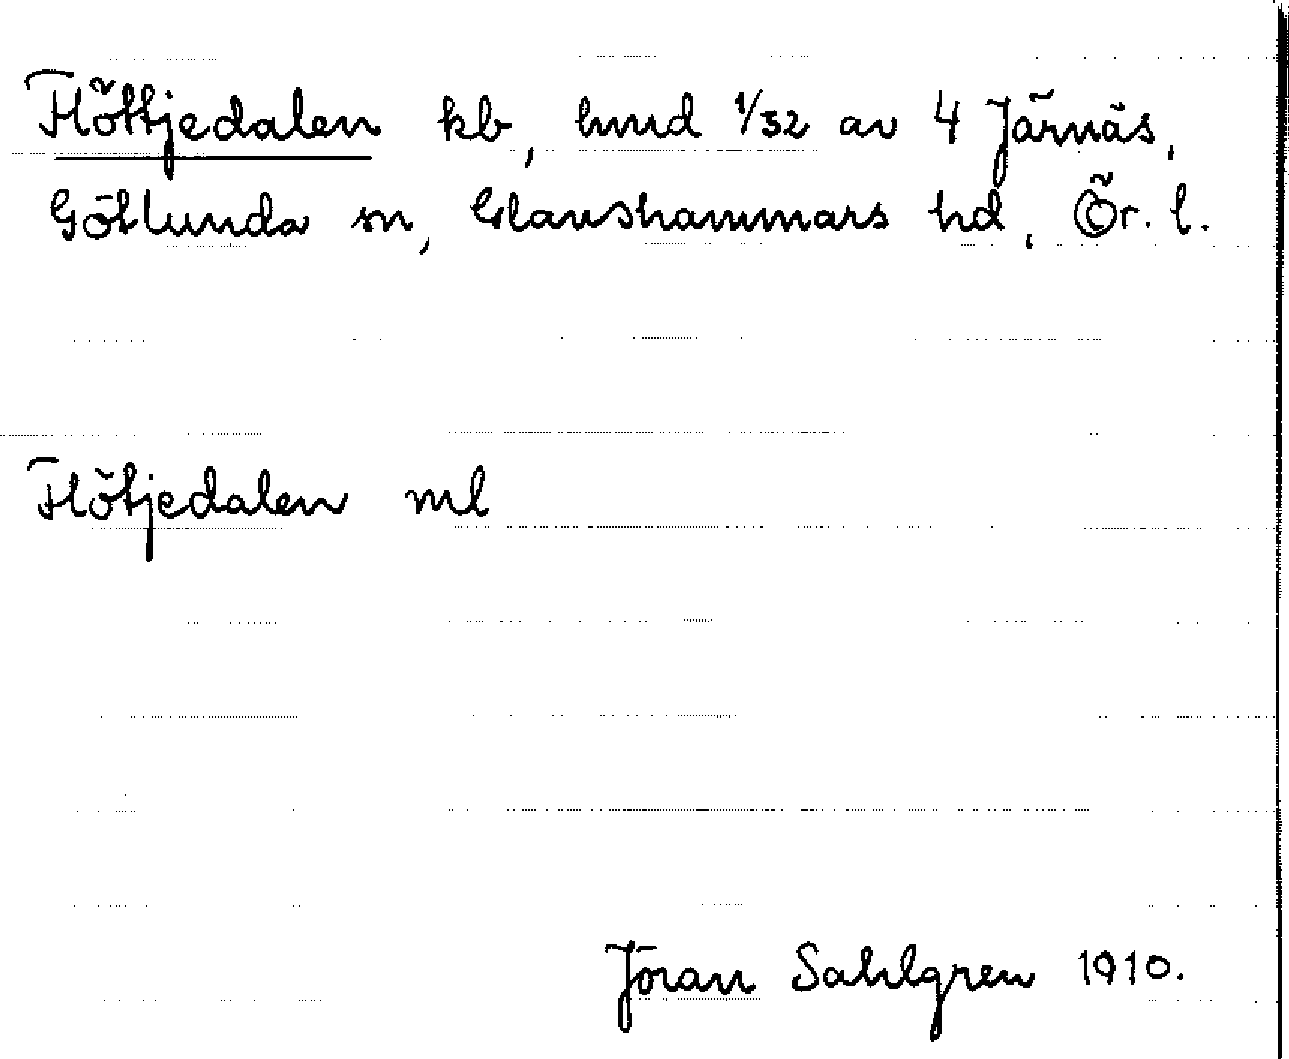 Flöttjedalen kb, hmd 1/32 av 4 Järnäs,
Götlunda sn, Glanshammars hd, Ör. l.
Flötjedalen ml
Jöran Sahlgren 1910.